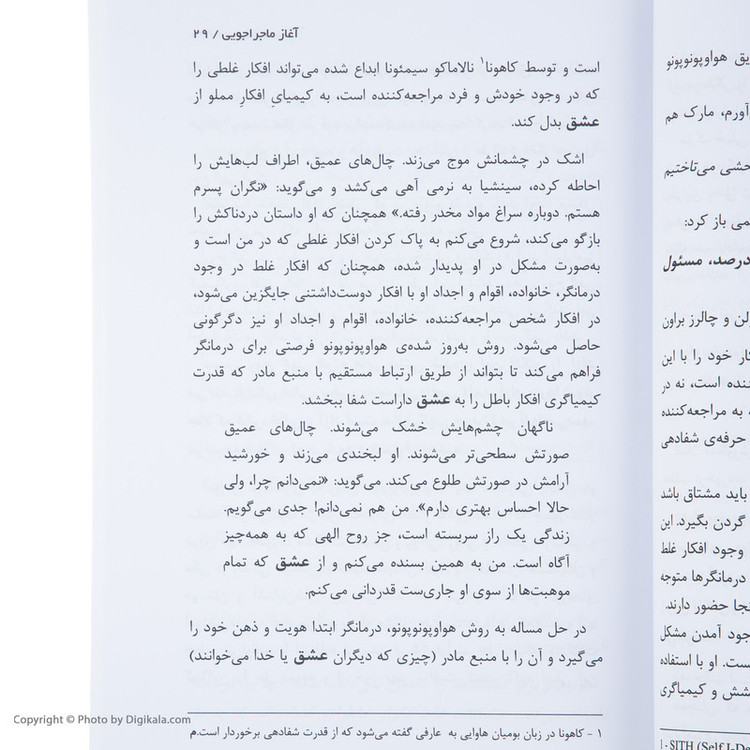 آغاز ماجراجویی / ۲۹
است و توسط کاهونا۱ نالاماکو سیمئونا ابداع شده می‌تواند افکار غلطی را
که در وجود خودش و فرد مراجعه‌کننده است، به کیمیایِ افکارِ مملو از
عشق بدل کند.
اشک در چشمانش موج می‌زند. چال‌های عمیق، اطراف لب‌هایش را
احاطه کرده، سینشیا به نرمی آهی می‌کشد و می‌گوید: «نگران پسرم
هستم. دوباره سراغ مواد مخدر رفته.» همچنان که او داستان دردناکش را
بازگو می‌کند، شروع می‌کنم به پاک کردن افکار غلطی که در من است و
به‌صورت مشکل در او پدیدار شده، همچنان که افکار غلط در وجود
درمانگر، خانواده، اقوام و اجداد او با افکار دوست‌داشتنی جایگزین می‌شود،
در افکار شخص مراجعه‌کننده، خانواده، اقوام و اجداد او نیز دگرگونی
حاصل می‌شود. روش به‌روز شده‌ی هواوپونوپونو فرصتی برای درمانگر
فراهم می‌کند تا بتواند از طریق ارتباط مستقیم با منبع مادر که قدرت
کیمیاگری افکار باطل را به عشق داراست شفا ببخشد.
ناگهان چشم‌هایش خشک می‌شوند. چال‌های عمیق
صورتش سطحی‌تر می‌شوند. او لبخندی می‌زند و خورشید
آرامش در صورتش طلوع می‌کند. می‌گوید: «نمی‌دانم چرا، ولی
حالا احساس بهتری دارم». من هم نمی‌دانم! جدی می‌گویم.
زندگی یک راز سربسته است، جز روح الهی که به همه‌چیز
آگاه است. من به همین بسنده می‌کنم و از عشق که تمام
موهبت‌ها از سوی او جاری‌ست قدردانی می‌کنم.
در حل مساله به روش هواوپونوپونو، درمانگر ابتدا هویت و ذهن خود را
می‌گیرد و آن را با منبع مادر (چیزی که دیگران عشق یا خدا می‌خوانند)
۱ - کاهونا در زبان بومیان هاوایی به عارفی گفته می‌شود که از قدرت شفادهی برخوردار است.م
یق هواوپونوپونو
آورم، مارک هم
می‌تاختیم
می باز کرد:
درصد، مسئول
لن و چالرز براون
کار خود را با این
ننده است، نه در
به مراجعه‌کننده
حرفه‌ی شفادهی
باید مشتاق باشد
گردن بگیرد. این
وجود افکار غلط
درمانگرها متوجه
نجا حضور دارند.
جود آمدن مشکل
ست. او با استفاده
شش و کیمیاگری
۱- SITH (Self I-De
Copyright © Photo by Digikala.com